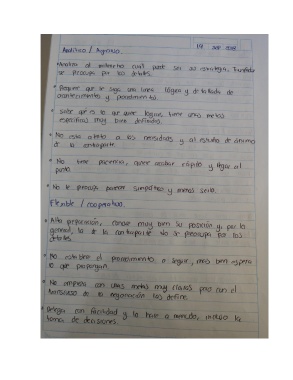 Analítico / Agresivo
Analiza al milímetro cuál puede ser su estrategia. También
se preocupa por los detalles.
• Requiere que le siga una línea lógica y detallada de
acontecimientos y procedimientos.
• sabe qué es lo que quiere lograr, tiene unas metas
específicas muy bien definidas.
• No está atento a las necesidades y al estado de ánimo
de la contraparte.
• No tiene paciencia, quiere acabar rápido y llegar al
punto.
• No le preocupa parecer simpático y menos serlo.
Flexible / cooperativo
• Alta preparación, conoce muy bien su posición y por lo
general, la de la contraparte no se preocupa por los
detalles.
• No establece el procedimiento a seguir, más bien espera
lo que propongan.
• No empieza con unas metas muy claras pero con el
transcurso de la negociación las define.
• Delega con facilidad y lo hace a menudo, incluso la
toma de decisiones.